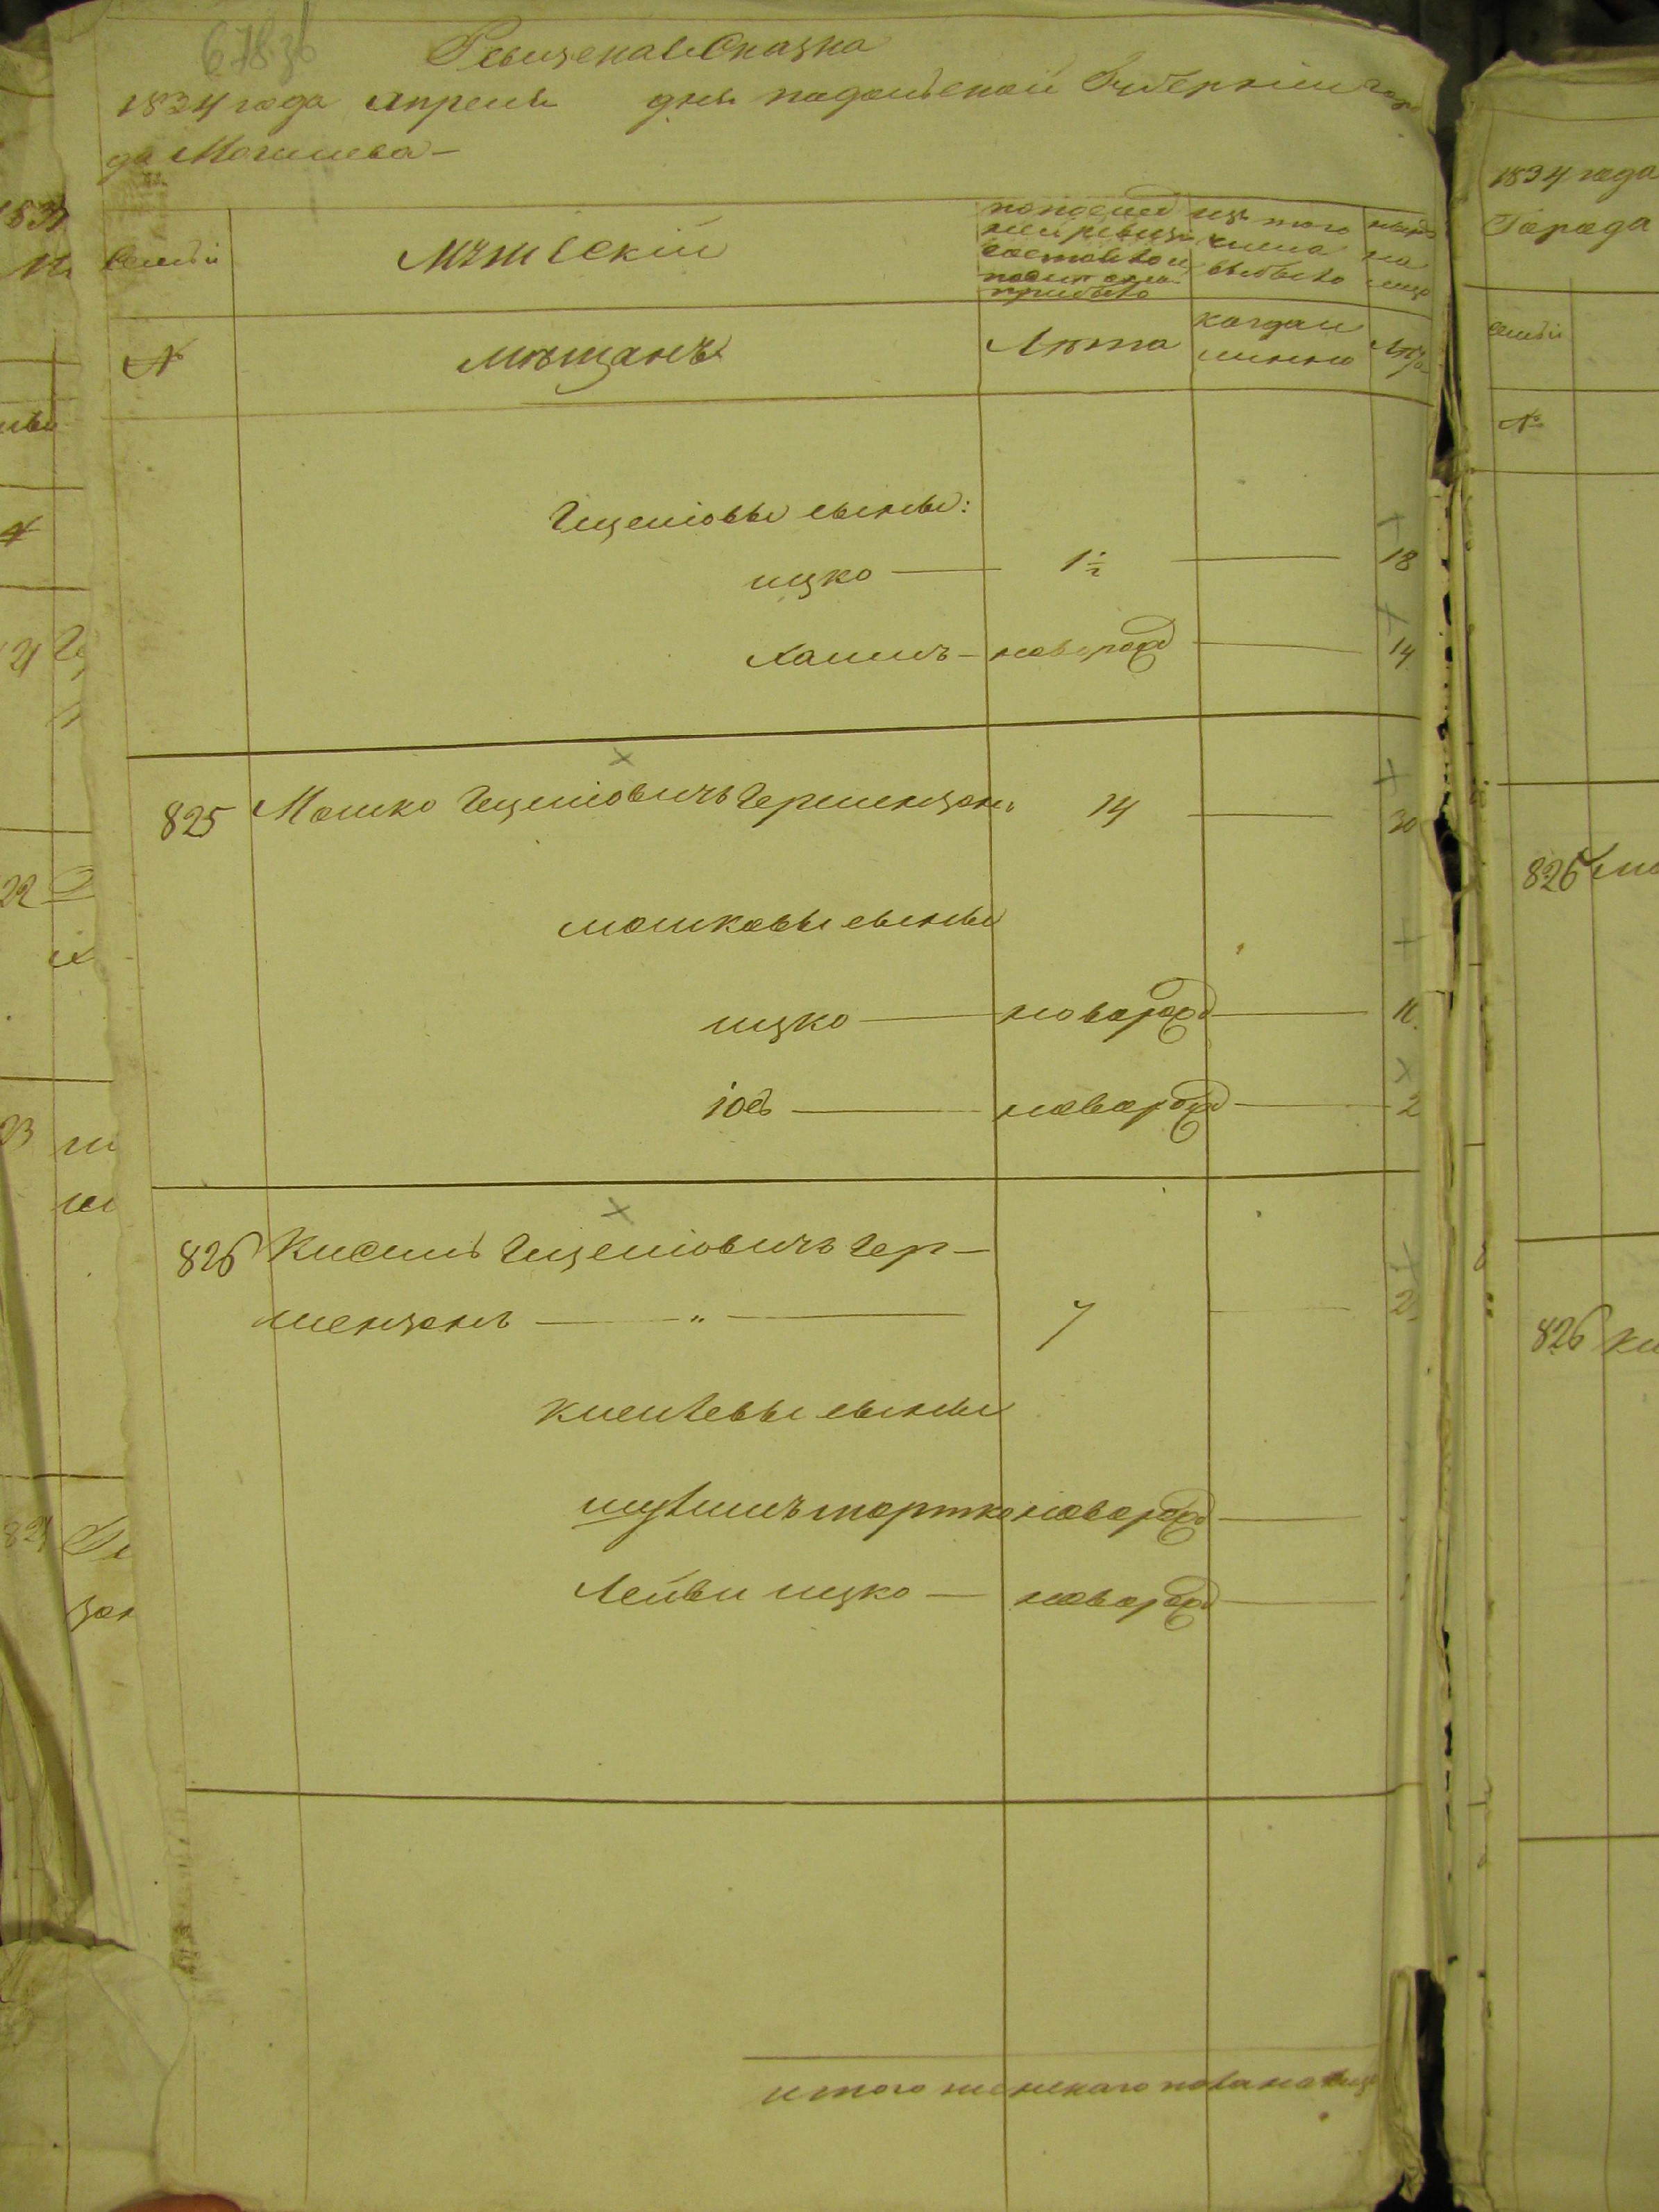 678 зб
Ревизская Сказка
1834 года апреля дня подольской Губернии горо
да Могилева
Семьи
Мужескій
по послед
ней ревизіи
состояло и
после оной
прибыло
изъ того
числа
выбыло
ныне
на
лицо
№
мещанъ
Лета
когда и
именно
Лета
Гецеліовы сыны:
ицко — 1½ — 18
Хаимъ — новорожд — 14
825 Мошко Гецеліовичъ Гершензонъ 14 — 30
мошковы сыны
ицко — новорожд — 11
іос — новорожд — 2
826 Кисиль Гецеліовичъ Гер-
шензонъ — „ — 7 — 2
Кисилевы сыны
мортко новорожд —
Лейби ицко — новорожд —
итого мужскаго пола на лицо
1834 года
Города
семьи
№
826
826 Ки